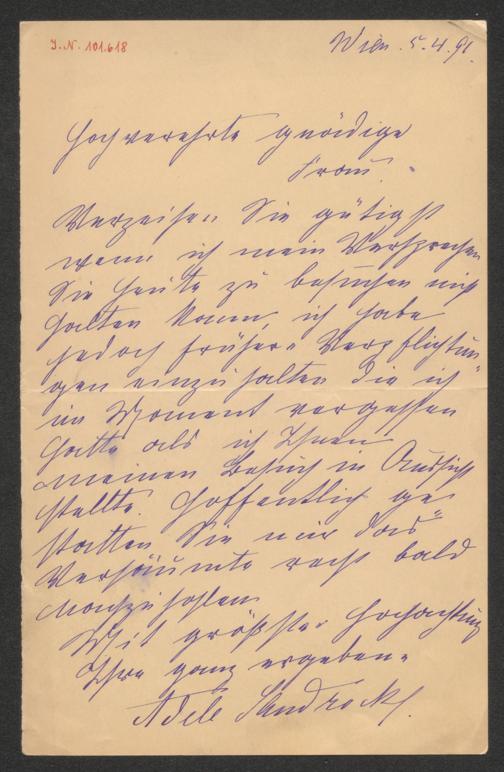 J.N. 101.618
Wien. 5.4.91.
Hochverehrte gnädige
Frau.
Verzeihen Sie gütigst
wenn ich mein Versprechen
Sie heute zu besuchen nicht
halten kann, ich habe
jedoch frühere Verpflichtun
gen einzuhalten die ich
im Moment vergessen
hatte als ich Ihnen
meinen Besuch in Aussicht
stellte. Hoffentlich ge-
statten Sie mir das
Versäumte recht bald
nachzuholen
Mit größter Hochachtung
Ihre ganz ergebene
Adele Sandrock.